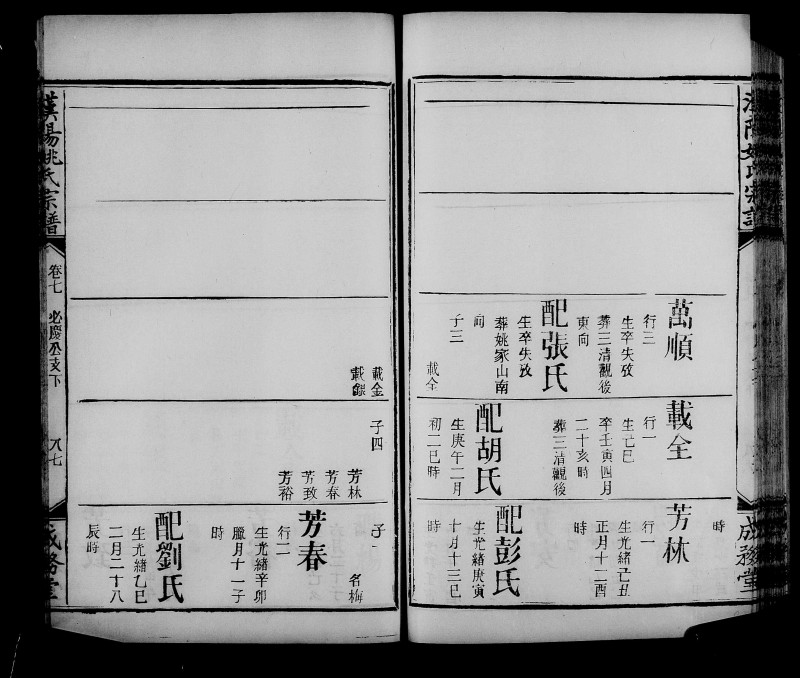 萬順
行三
生卒失攷
葬三清觀後
東向
配張氏
生卒失攷
葬姚家山南
向
子三
載全
載金
載銀
載全
行一
生己巳
卒壬寅四月
二十亥時
葬三清觀後
配胡氏
生庚午二月
初二巳時
子四
芳林
芳春
芳致
芳裕
時
芳林
行一
生光緒己丑
正月十二酉
時
配彭氏
生光緒庚寅
十月十三巳
時
子一
名梅
芳春
行二
生光緒辛卯
臘月十一子
時
配劉氏
生光緒乙巳
二月二十八
辰時
成務堂
漢陽姚氏宗譜
卷七
必慶公支下
八七
成務堂